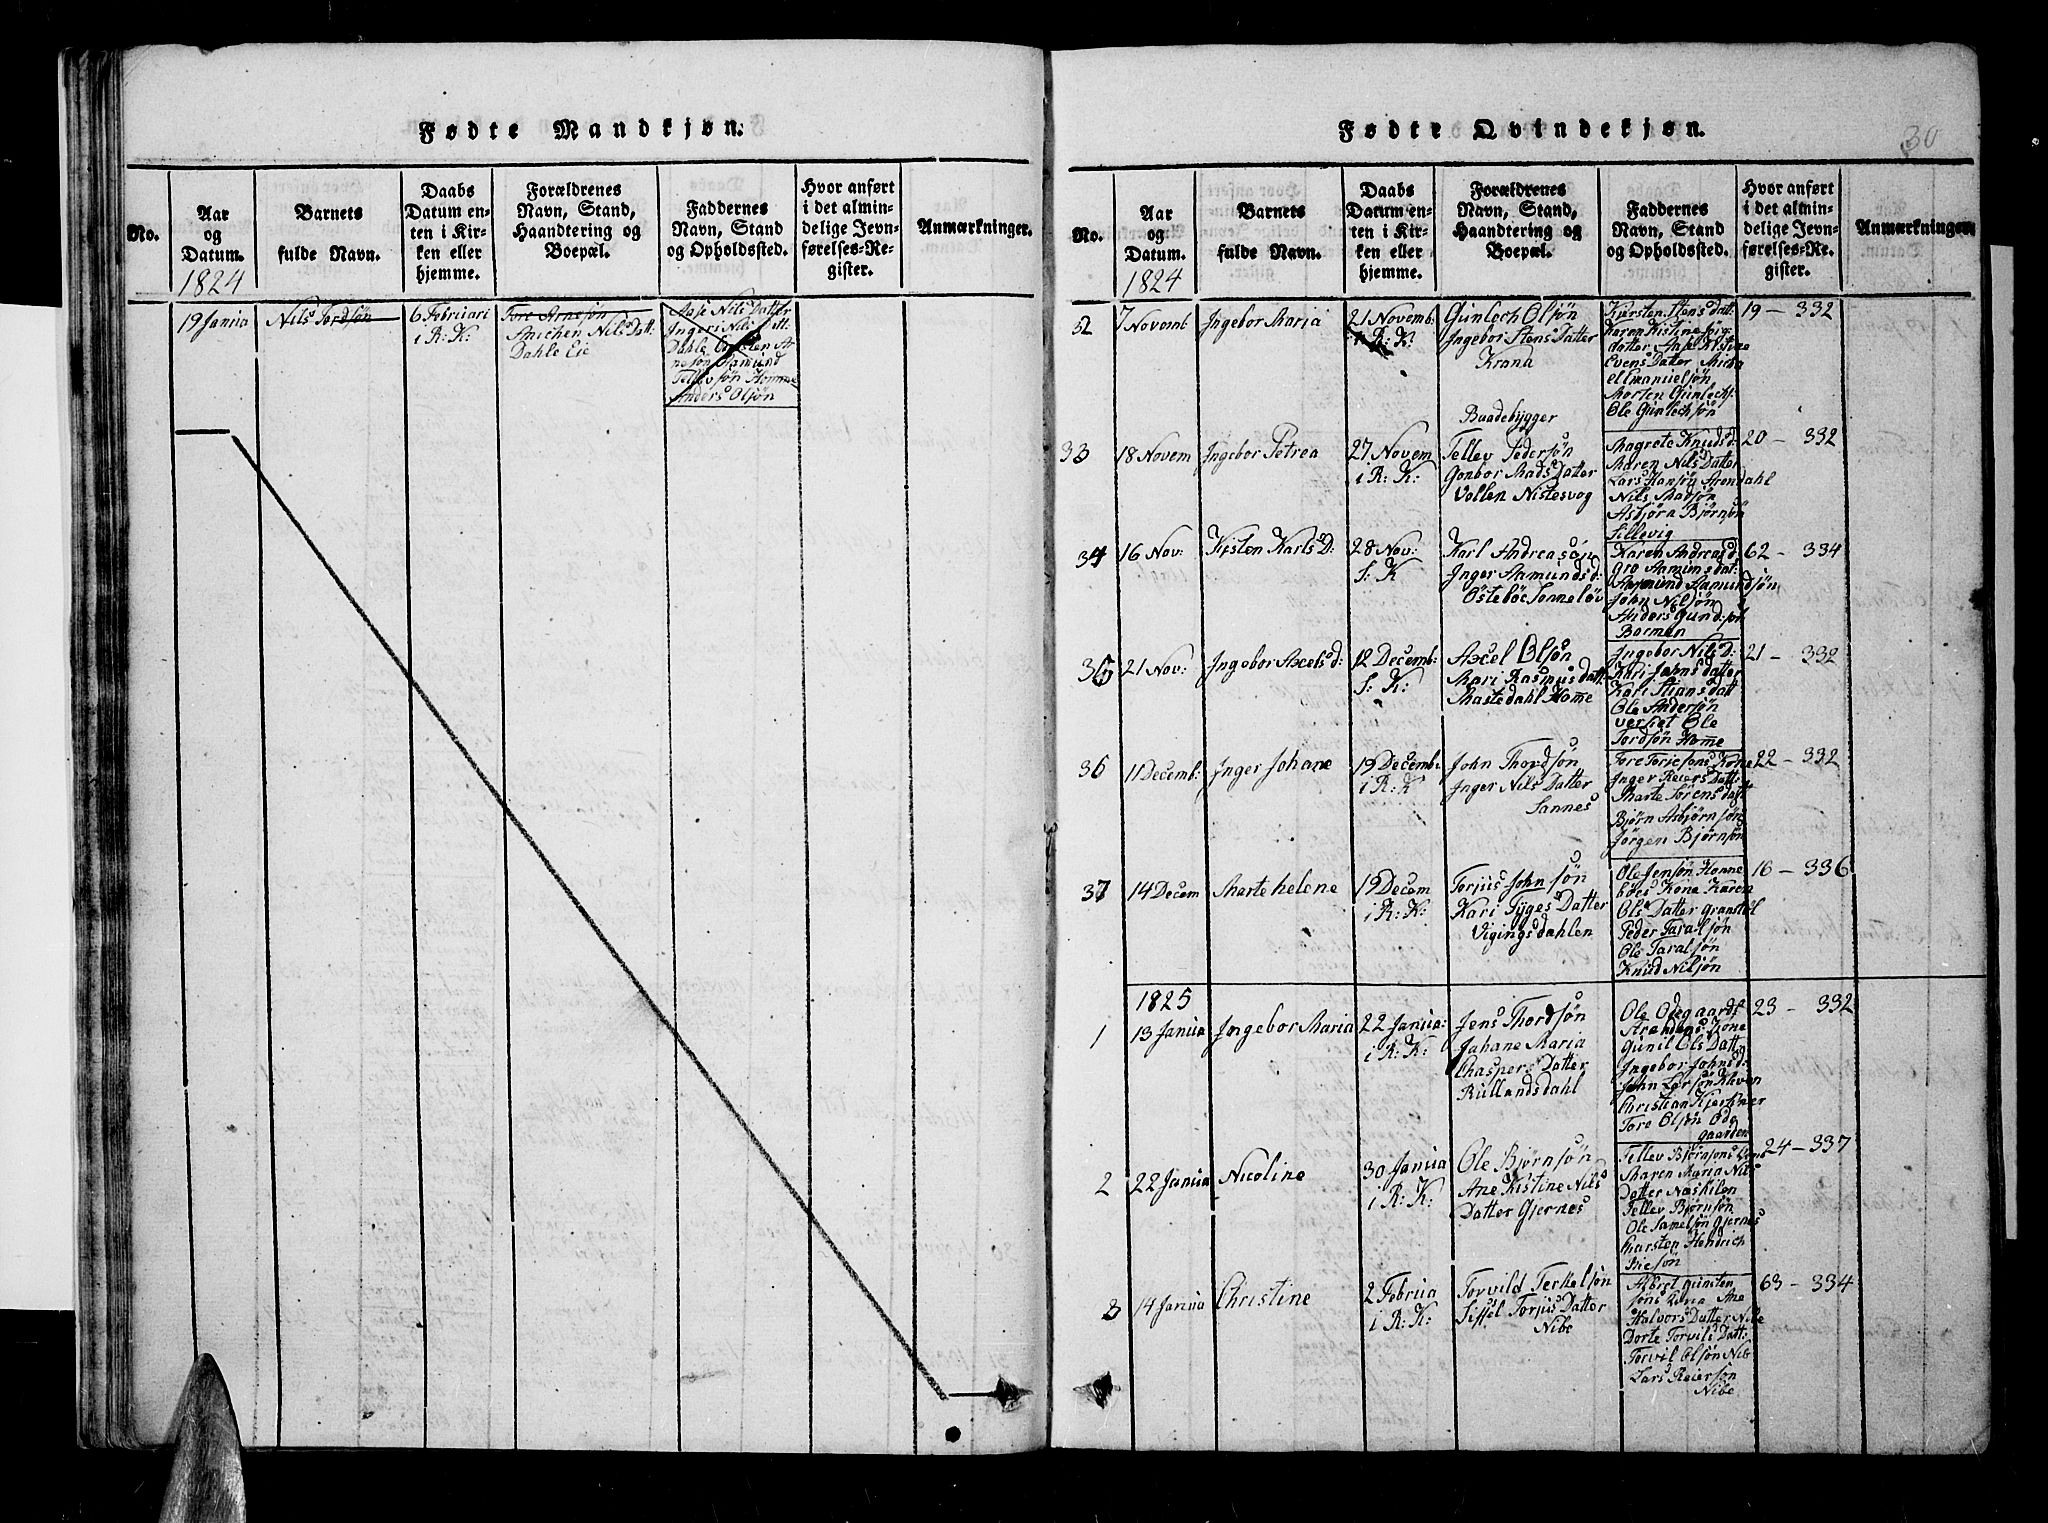 Fødte Mandkjøn.
No.
Aar
og
Datum.
1824
Barnets
fulde Navn.
Daabs
Datum en-
ten i Kir-
ken eller
hjemme.
Forældrenes
Navn, Stand,
Haandtering og
Boepæl.
Faddernes
Navn, Stand
og Opholdssted.
Hvor anført
i det almin-
delige Jevn-
førelses-Re-
gister.
Anmærkninger.
19 Janua
Nils Tordsøn
6 Februari
i R: K:
Tore Arnesøn
Anichen Nils Datt:
Dahle Eie
Aase Nils Datter
Ingeri Nils Datt
Dahle Carsten Ar
nesøn Aamund
Tellevsøn Homme
Anders Olsøn
Fødte Qvindekjøn.
30
No.
Aar
og
Datum.
1824
Barnets
fulde Navn.
Daabs
Datum en-
ten i Kir-
ken eller
hjemme.
Forældrenes
Navn, Stand,
Haandtering og
Boepæl.
Faddernes
Navn, Stand
og Opholdssted.
Hvor anført
i det almin-
delige Jevn-
førelses-Re-
gister.
Anmærkninger.
32
7 Novemb
Ingebor Maria
21 Novemb:
i R: K:
Gunlech Olsøn
Ingebor Stens Datter
Krana
Kjersten Stens datt:
Karen Kistine Jørg
datter Aase Kistine
Evens Datter
el Emanuelsøn
Morten Gunlechs:
Ole Gunlechsøn
19 — 332
33
18 Novem
Ingebor Petrea
27 Novem
i R: K:
Baadebygger
Tellev Pedersøn
Gonbor Mads Datter
Vollen Nistesvog
Magrete Knuds d:
Maren Nils Datter
Lars Hansøn Arendahl
Nils Madsøn
Asbjøra Bjørnsøn
Lillevig
20 — 332
34
16 Nov:
Kisten Karls D:
28 Nov:
S: K
Karl Andreasøn
Inger Aamunds d:
Østebøe Tonneløv
Karen Andreas d:
Gro Aamuns dat:
Aamund Aamundsøn
John Nilsøn
Anders Gund:søn
Borman
62 — 334
35
21 Nov:
Ingebor Axels d:
12 Decemb:
S: K:
Axcel Olsøn
Mari Rasmus datt:
Mastedahl Home
Ingebor Nils D:
Kari Johns datter
Kari Stians datt
Ole Andersøn
versket Ole
Tordsøn Home
21 — 332
36
11 Decemb:
Inger Johane
19 Decemb:
i R: K
John Thordsøn
Inger Nils Datter
Sannes
Tore Torjesøns Kone
Inger Reiers Datt:
Marte Sørens datt
Bjørn Asbjørnsøn
Jørgen Bjørnsøn
22 — 332
37
14 Decem
Marte helene
19 Decem
i R: K:
Torjus Johnsøn
Kari Tyges Datter
Vigingsdahlen
Ole Jensøn Honne
bøes Kone Karen
Ols Datter Granstøl
Peder Taralsøn
Ole Taralsøn
Knud Nilsøn
16 — 336
1825
1
13 Janua
Ingebor Maria
22 Janua:
i R: K:
Jens Thordsøn
Johane Maria
Chaspers Datter
Rullandsdahl
Ole Odegaards
Strandens Kone
Gunil Ols Datter
Ingebor Johns d:
John Larsøn Kleven
Christian Kjersøner
Tore Olsøn Ode
gaarden
23 — 332
2
22 Janua
Nicoline
30 Janua
i R: K:
Ole Bjørnsøn
Ane Kistine Nils
Datter Gjernes
Tellev Bjørnsøns Kone
Maren Maria Nils
Datter Næskilen
Tellev Bjørnsøn
Ole Samelsøn Gjernes
Charsten Hendrich
Biesøn
24 — 337
3
14 Janua
Christine
2 Februa
i R: K:
Torvild Terkelsøn
Siffel Torjus Datter
Nibe
Albret Gunsten
søns Kona Ane
Halvors Datter Nibe
Dorte Torvils Datt:
Torvil Olsøn Nib
Lars Reiersøn
Nibe
63 — 334